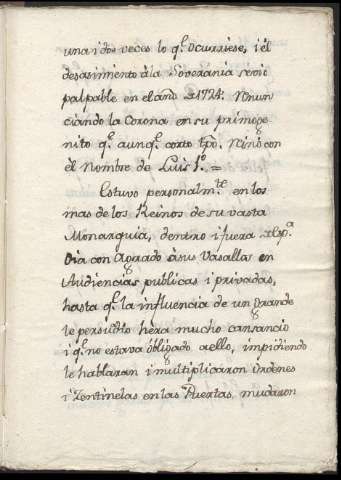 una i dos veces lo q.e ocurriese, i él
desasimiento dla Soverania se vió
palpable en el año d 1724. Renun
ciando la Corona en su primoge
nito q.e aunq.e corto tpo. Reinó con
él Nombre de Luis 1.o =
Estuvo personalm.te en los
mas de los Reinos de su vasta
Monarquia, dentro i fuera d Esp.a
Oia con Agrado á sus Vasallos en
Audiencias publicas i privadas,
hasta q.e la influencia de un Grande
le persudio hera mucho cansancio
i q.e no estava óbligado a ello, impidiendo
le hablaran i multiplicaron Ordenes
i Zentinelas en las Puertas, mudaron